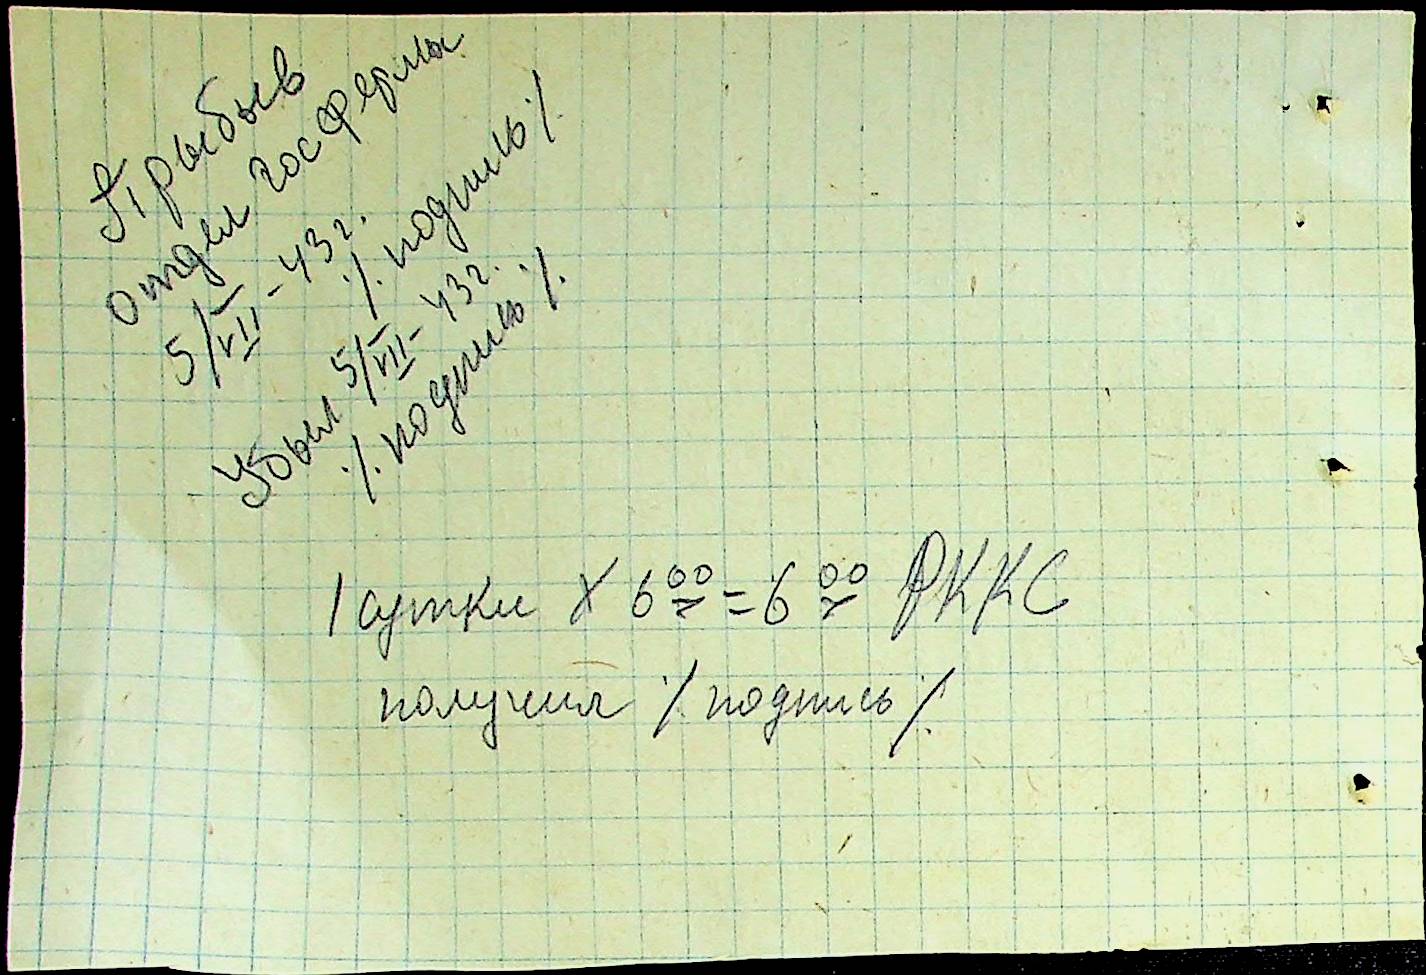 Прыбыв
отдел госфермы
5/VII - 43 г.
./. подпись ./.
Убыл 5/VII - 43 г.
./. подпись ./.
1 сутки х 6 00 = 6 00 РККС
получил ./. подпись ./.